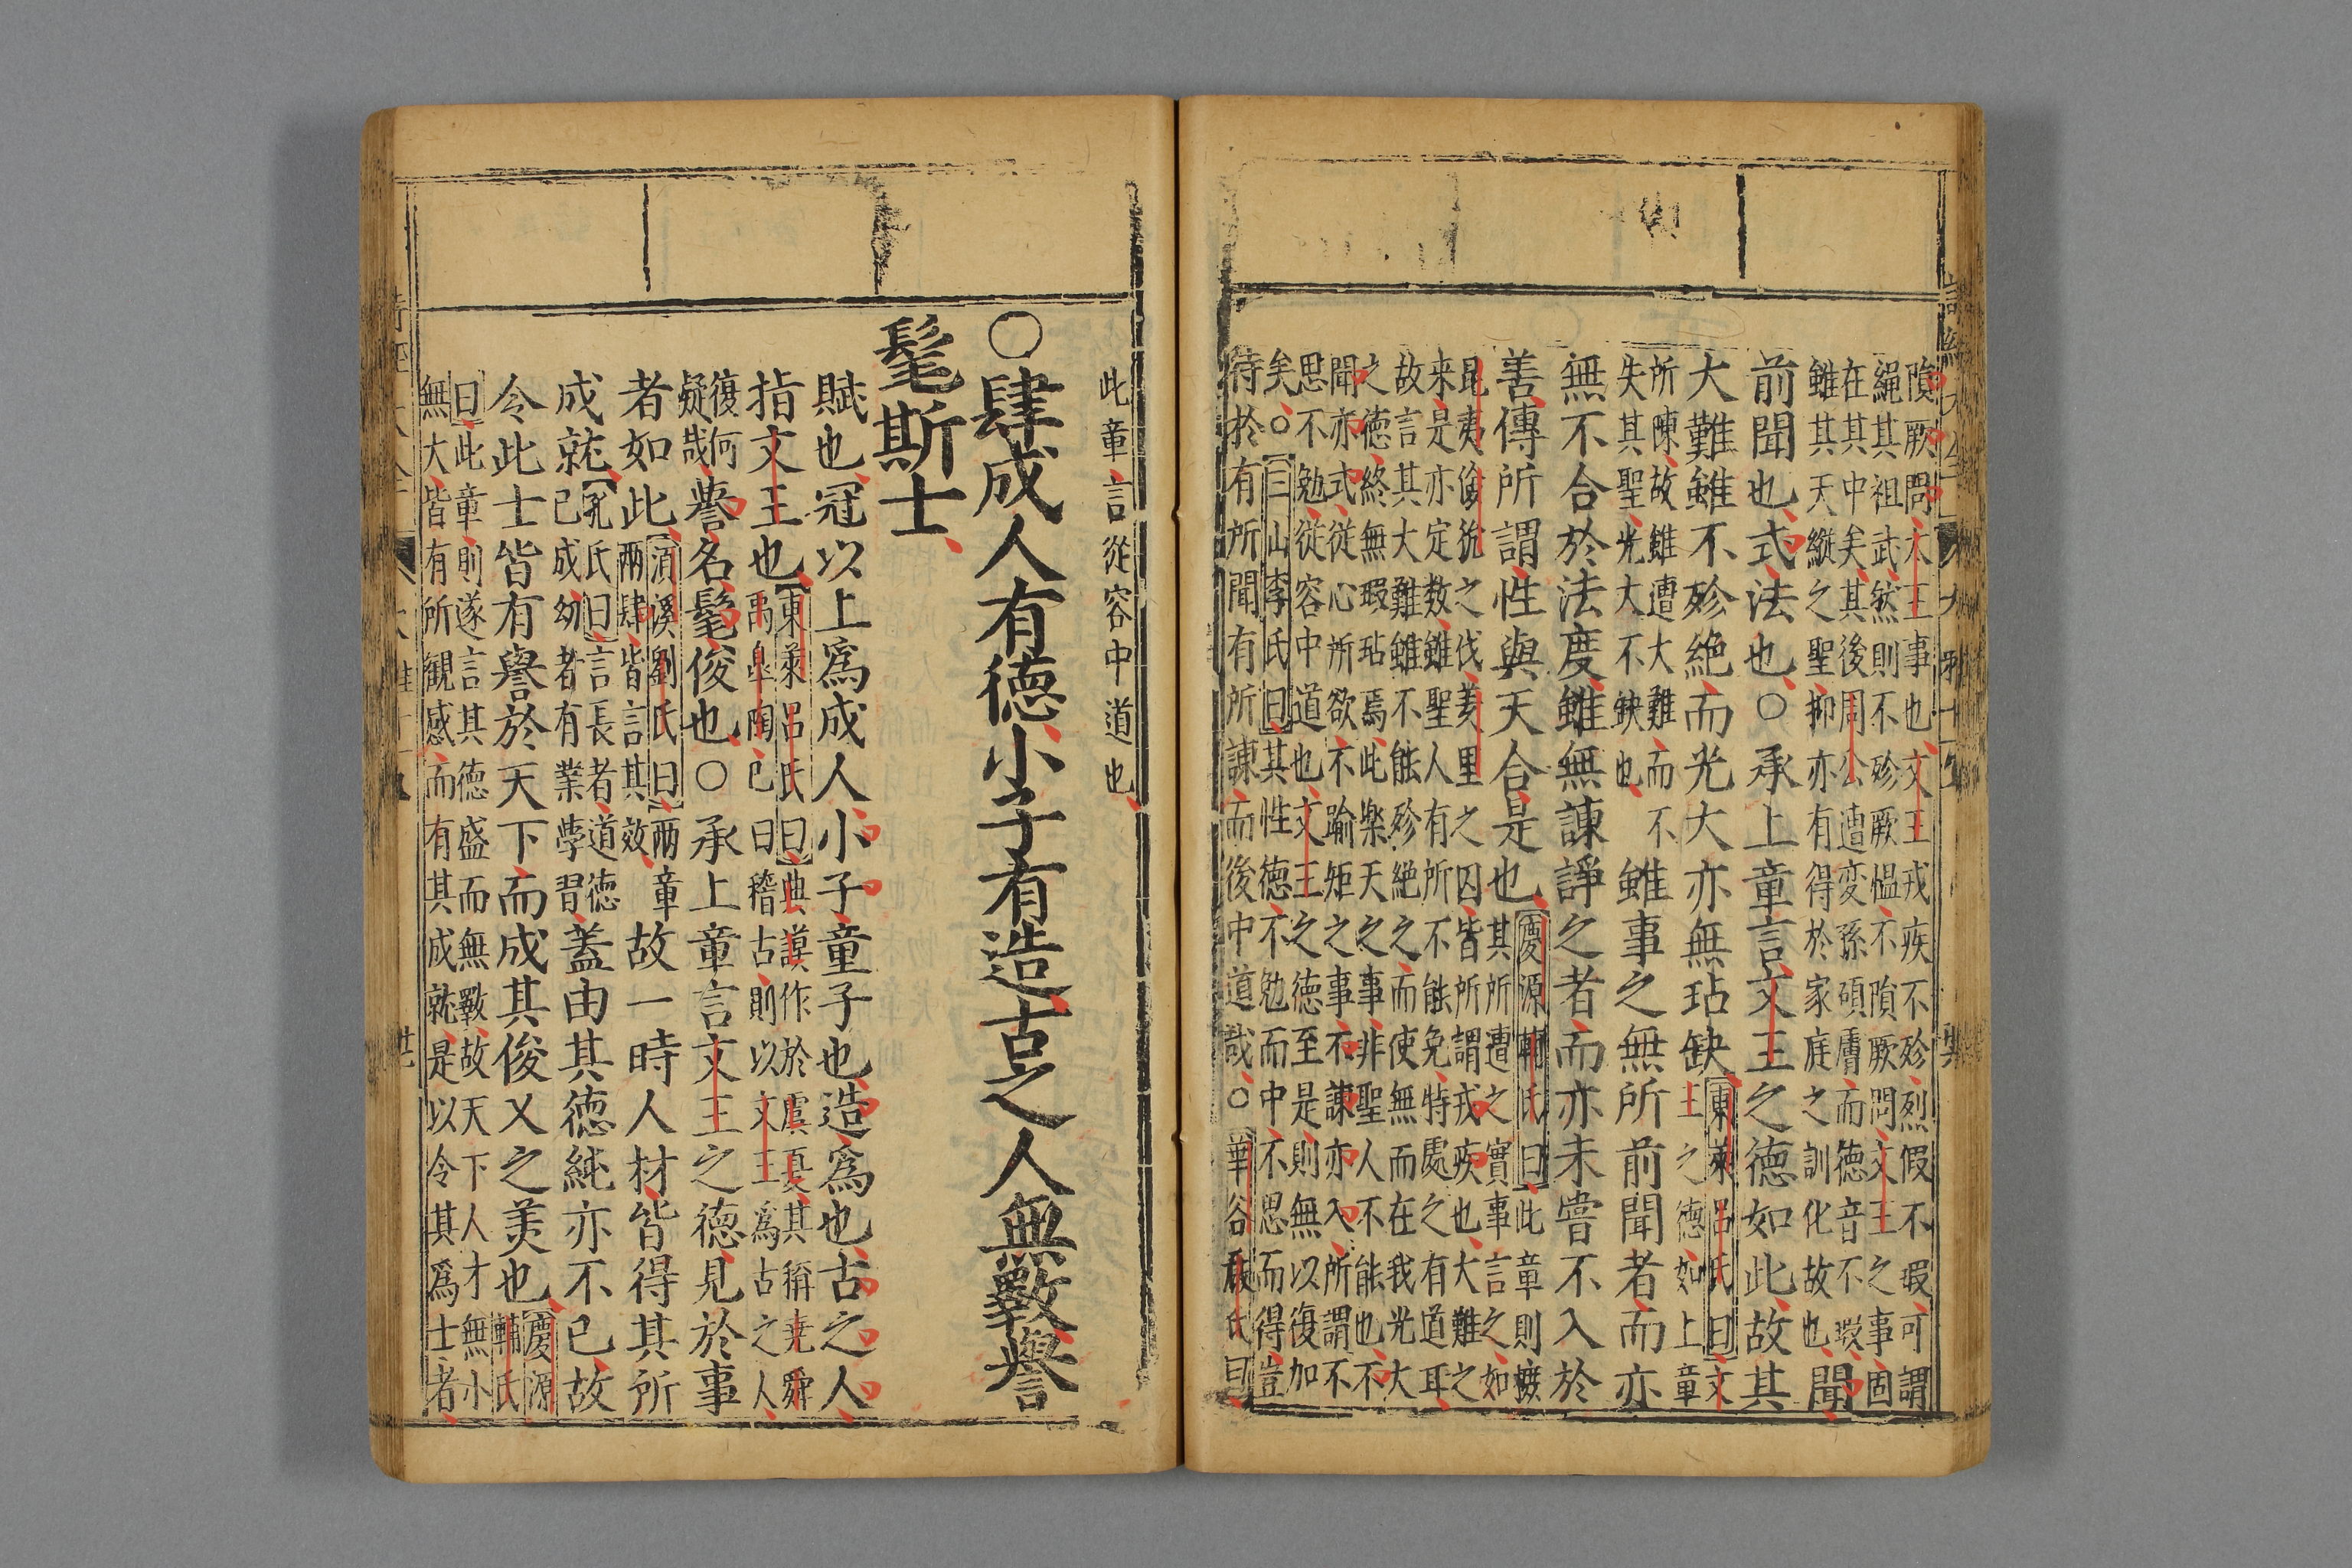 隕厥問太王事也文王戎疾不殄烈假不瑕可謂
繩其祖武然則不殄厥慍不隕厥問文王之事固
在其中矣其後周公遭変孫碩膚而徳音不瑕
雖其天縦之聖抑亦有得於家庭之訓化故也聞
前聞也式法也○承上章言文王之徳如此故其
大難雖不殄絶而光大亦無玷缺東萊呂氏曰文
王之徳如上章
所陳故雖遭大難而不
失其聖光大不缺也
雖事之無所前聞者而亦
無不合於法度雖無諫諍之者而亦未嘗不入於
善傳所謂性與天合是也慶源輔氏曰此章則摭
其所遭之實事言之如
昆夷儉狁之伐羑里之囚皆所謂戎疾也大難之
来是亦定数雖聖人有所不能免特處之有道耳
故言其大難雖不能殄絶之而使無而在我光大
之徳終無瑕玷焉此楽天之事非聖人不能也不
聞亦式従心所欲不踰矩之事不諫亦入所謂不
思不勉従容中道也文王之徳至是則無以復加
矣○三山李氏曰其性徳不勉而中不思而得豈
待於有所聞有所諫而後中道哉○華谷嚴氏曰
此章言從容中道也
○肆成人有徳小子有造古之人無斁譽
髦斯士
賦也冠以上爲成人小子童子也造爲也古之人
指文王也東萊呂氏曰典謨作於虞夏其稱堯舜
禹皐陶已曰稽古則以文王爲古之人
復何
疑哉
譽名髦俊也○承上章言文王之徳見於事
者如此湏溪劉氏曰兩章
兩肆皆言其效
故一時人材皆得其所
成就孔氏曰言長者道徳
已成幼者有業學習
蓋由其徳純亦不已故
令此士皆有譽於天下而成其俊乂之美也慶源
輔氏
曰此章則遂言其徳盛而無斁故天下人才無小
無大皆有所観感而有其成就是以令其爲士者